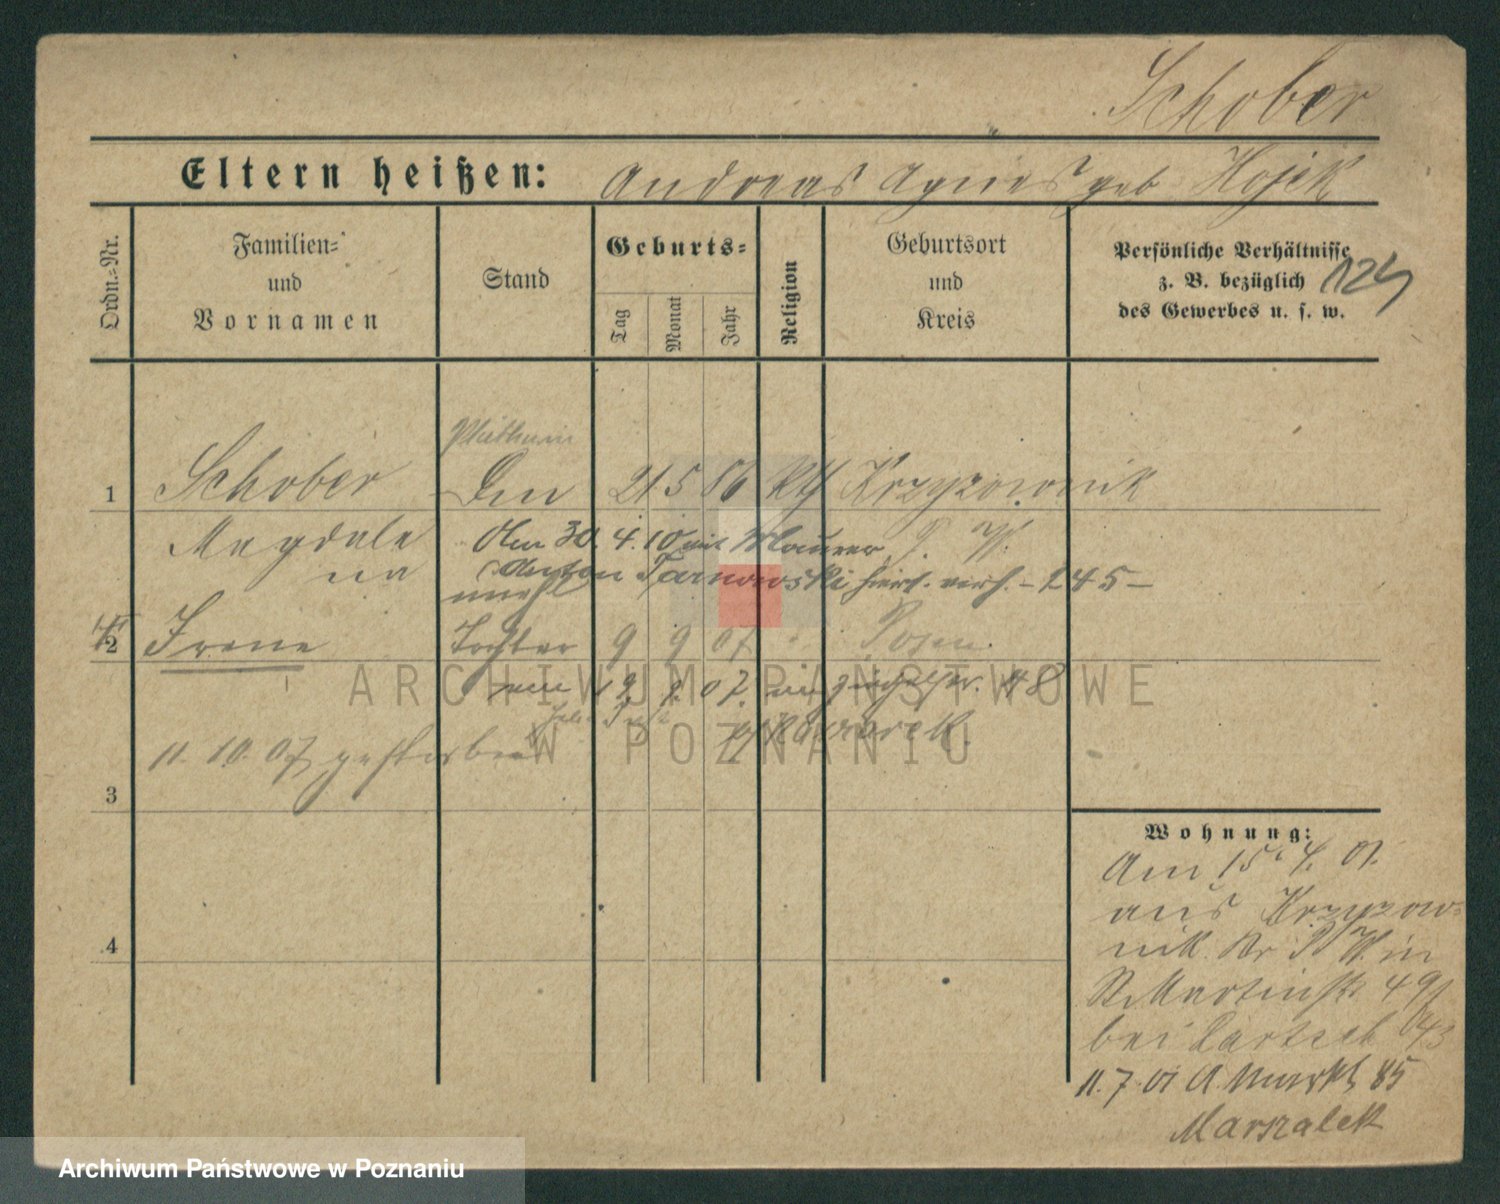 Schober
Eltern heißen: Andreas Agnes geb Hojek
Ordn.=Nr.
Familien=
und
Vornamen
Stand
Geburts=
Tag
Monat
Jahr
Religion
Geburtsort
und
Kreis
Persönliche Verhältnisse
z. B. bezüglich
des Gewerbes u. s. w.
124
1 Schober 21 5 86 kth Krzyzownik
Magdale
na
Am 30. 4. 10 mit Maurer P. W.
Anton Tarnowski hierf. verh. - 245 -
2 Irene Tochter 9 9 07 Posen.
11. 10. 07 gestorben
3
4
Wohnung:
Am 15. 4. 01.
aus Krzyzow-
nik Kr P W. in
St Martinstr 49/
bei
11. 7. 01 A. Markt 85
Marszalek
ARCHIWUM PAŃSTWOWE
W POZNANIU
Archiwum Państwowe w Poznaniu